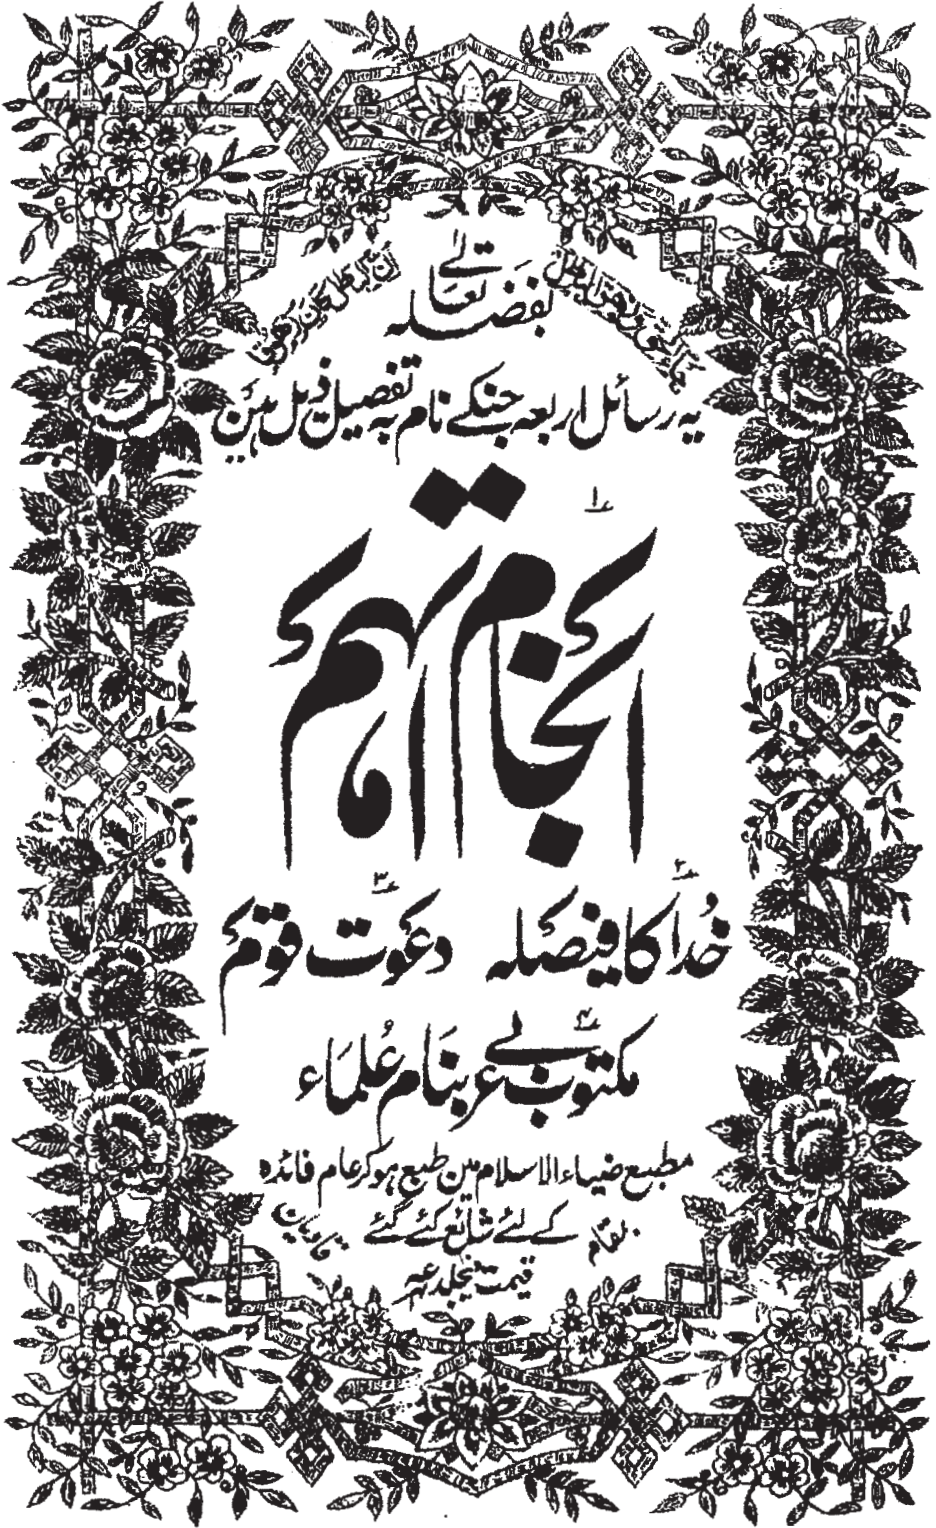 جاء الحق وزهق الباطل
ان الباطل كان زهوقا
بفضلہ تعالےٰ
یہ رسائل اربعہ جنکے نام بہ تفصیل ذیل ہیں
۱
انجام آتھم
۲ ۳
خُدا کا فیصلہ دعوت قوم
۴
مکتوب عربی بنام عُلماء
مطبع ضیاء الاسلام میں طبع ہو کر عام فائدہ
کے لئے شائع کئے گئے
بمقام قادیان
قیمت فیجلد